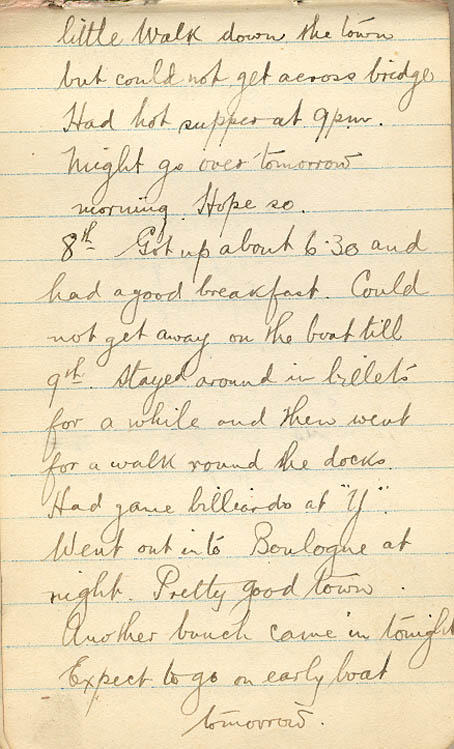 little walk down the town
but could not get across bridge
Had hot supper at 9pm.
Might go over tomorrow
morning. Hope so.
8th Got up about 6.30 and
had a good breakfast. Could
not get away on the boat till
9th. Stayed around in billets
for a while and then went
for a walk round the docks.
Had game billiards at "Y".
Went out into Boulogne at
night. Pretty good town.
Another bunch came in tonight
Expect to go on early boat
tomorrow.